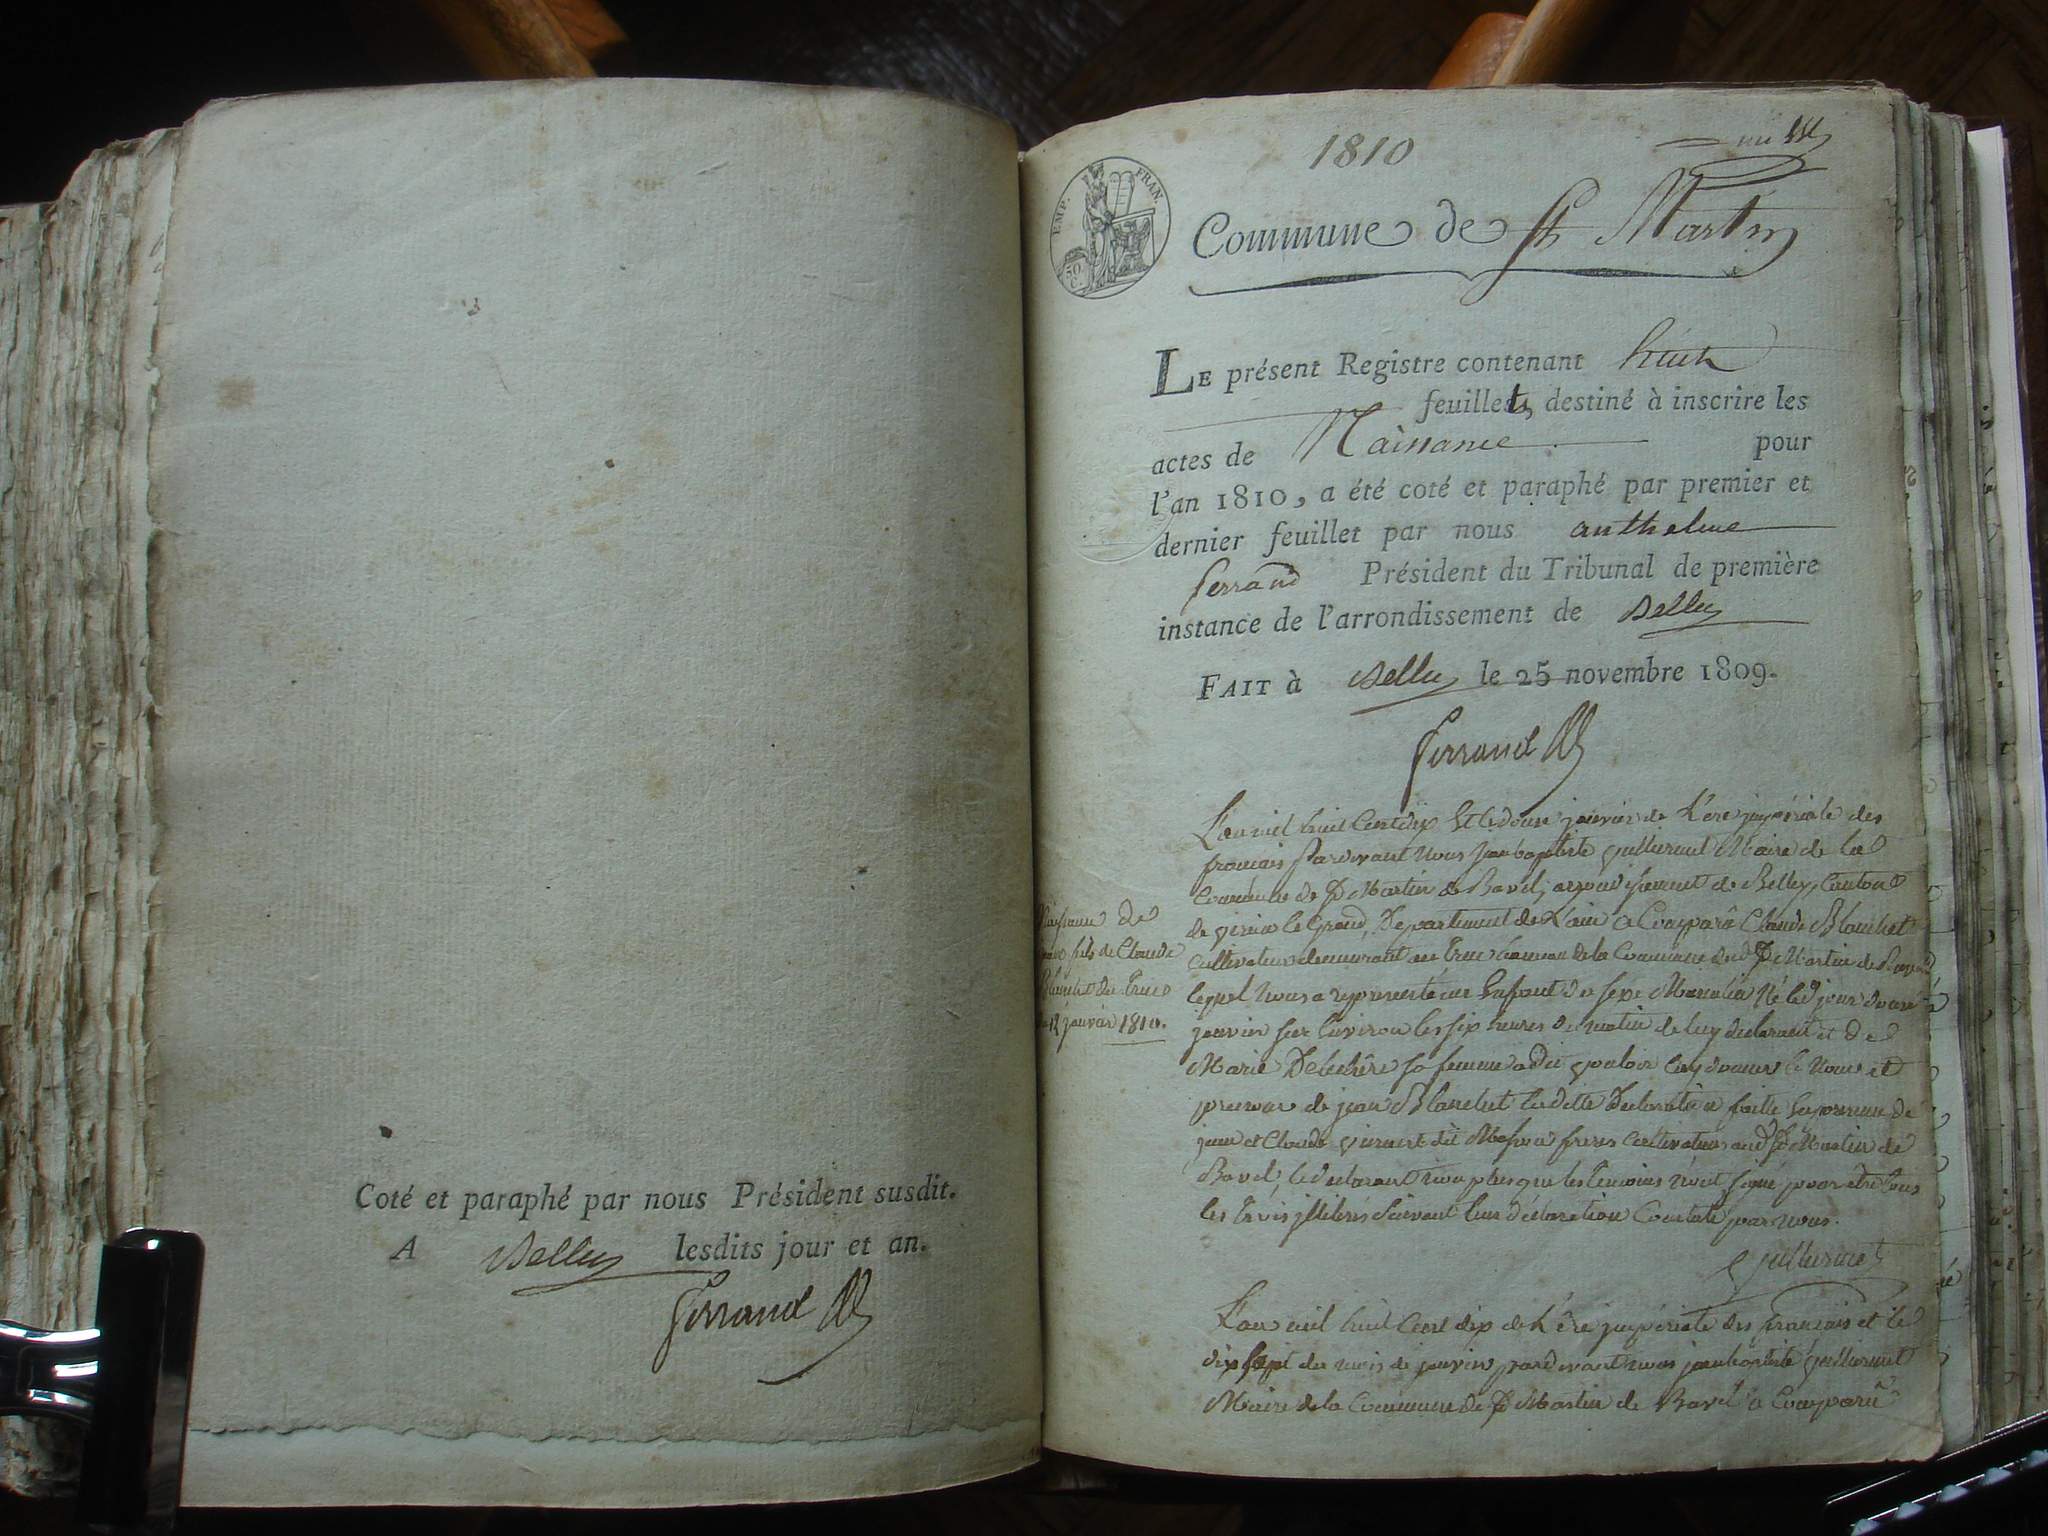 Coté et paraphé par nous Président susdit.
A Belley lesdits jour et an.
Ferrand
1810
EMP. FRAN.
50 C.
Commune de St Martin
LE présent Registre contenant huit
feuillets, destiné à inscrire les
actes de Naissance pour
l'an 1810, a été coté et paraphé par premier et
dernier feuillet par nous anthelme
ferrand Président du Tribunal de première
instance de l'arrondissement de Belley
FAIT à Belley le 25 novembre 1809.
Ferrand
L'an mil huit Cent dix Et le douze janvier de L'ère impériale des
français Pardevant Nous jean baptiste guillermet Maire de la
Commune de St Martin de Bavel, arrondissement de Belley, Canton
de virieu Le Grand, Departement de L'ain a Comparu Claude Blanchet
cultivateur demeurant au Truc hameau de la Commune dud St Martin de Bavel
lequel Nous a représenté un Enfant de sexe Masculin Né led jour douze
janvier sur Lenviron les six heures du matin de luy declarant et de
Marie sa femme a dit vouloir luy donner le Nom et
prenom de jean Blanchet la ditte Declaration faitte En presence de
jean et Claude dit freres Cultivateurs aud St Martin de
Bavel, le declarant non plus que les Temoins n'ont signé pour etre tous
les trois illiterés suivant leur déclaration Constaté par nous.
guillermet
Naissance de
jean fils de Claude
Blanchet du Truc
du 12 janvier 1810.
L'an mil huit Cent dix de L'ère impériale des français et le
dix sept du mois de janvier pardevant nous jean baptiste guillermet
Maire de la Commune de St Martin de Bavel a Comparu